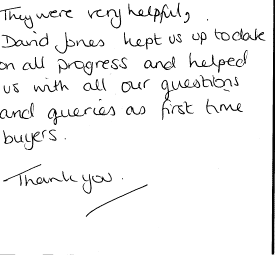 They were very helpful,
David Jones kept us up to date
on all progress and helped
us with all our questions
and queries as first time
buyers.
Thank you.